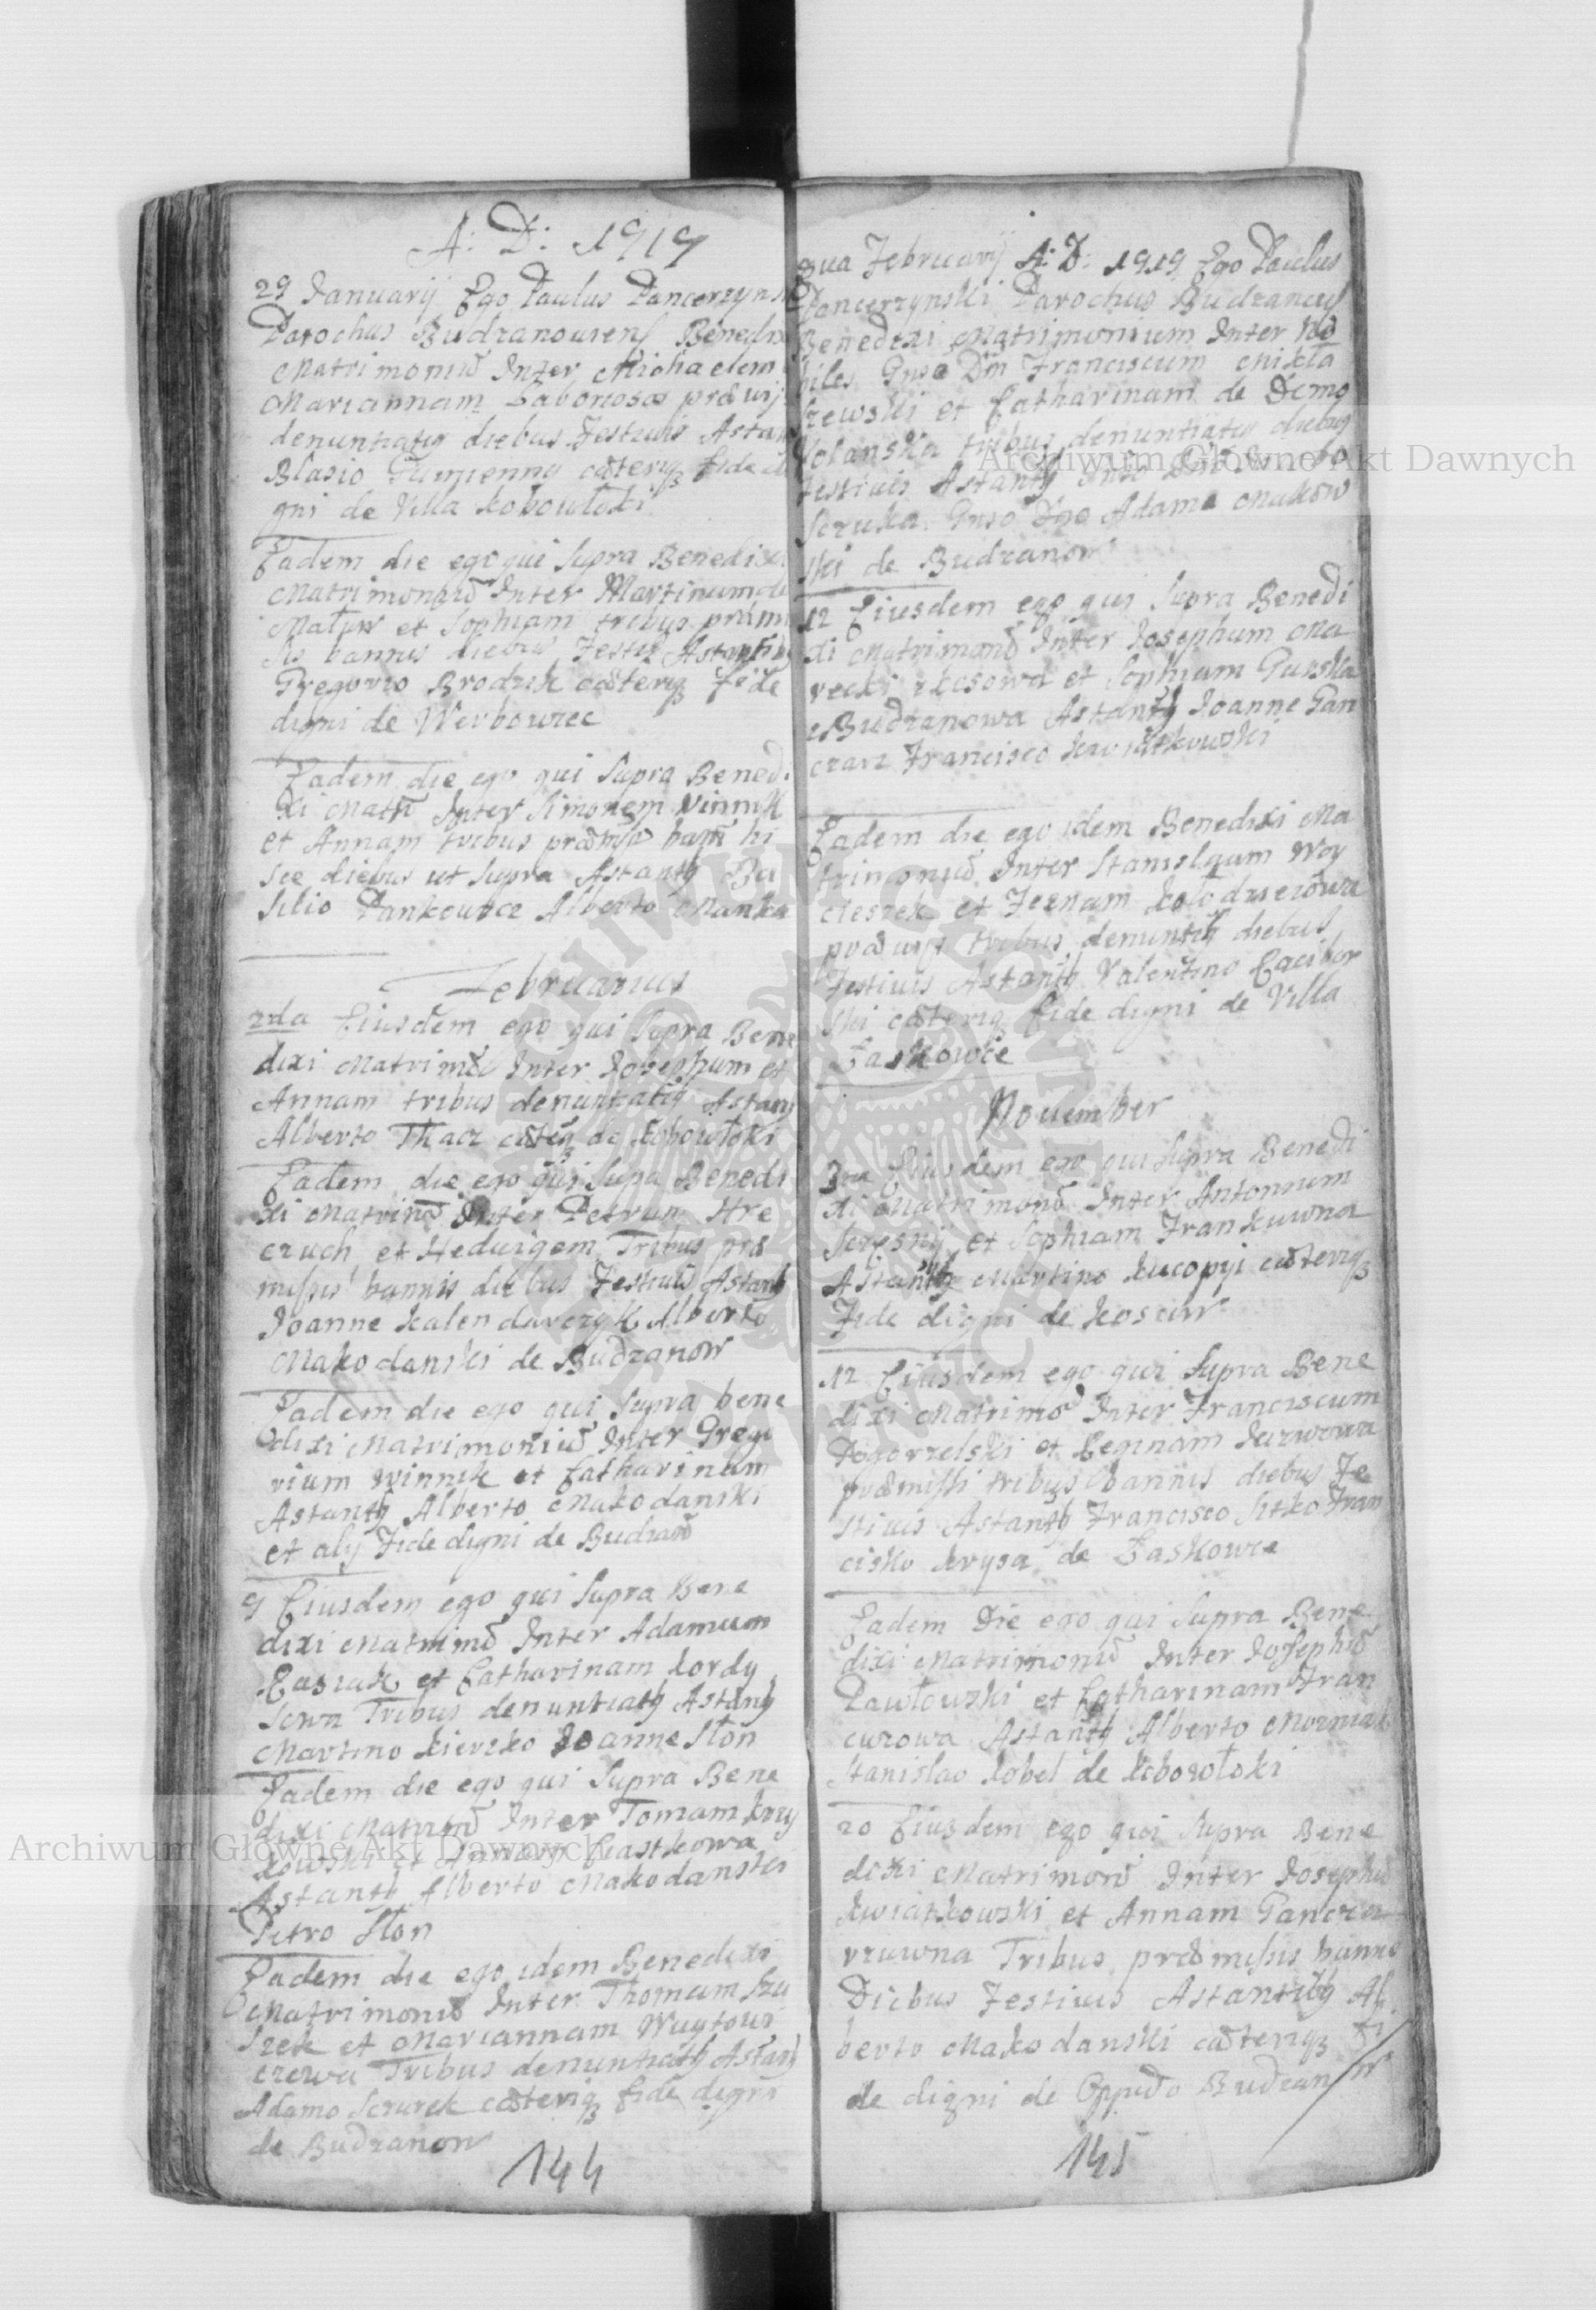 A: D: 1719
29 Januarij Ego Paulus Pancerzynski
Parochus Budzanouiens Benedixi
Matrimoniũ Inter Michaelem
Mariannam Laboriosos præuijs
denuntiatis diebus Festiuis Astan
Blasio Gumienny cæterisq3 fide di
gni de Villa Kobowłoki
Eadem die ego qui Supra Benedixi
Matrimoniũ Inter Martinum de
Małow et Sophiam tribus præmi
sis bannis diebus Festis Astantib9
Gregorio Brodzik cæterisq3 fide
digni de Werbowiec
Eadem die ego qui Supra Benedi
xi Matri Inter Simonem Winnik
et Annam tribus præmis bañi hi
sce diebus ut Supra Astantb Ba
silio Pankowicz Alberto Manka
Februarius
2da Eiusdem ego qui Supra Bene
dixi Matrimõ Inter Josephum et
Annam tribus denuntiatis Astantb
Alberto Tkacz cæterisq3 de Kobowłoki
Eadem die ego qui Supra Benedi
xi Matrimõ Inter Petrum Hre
czuch et Heduigem Tribus præ
missis bannis diebus Festiuis Astantb
Joanne Kalendarczyk Alberto
Makodanski de Budzanow
Eadem die ego qui Supra bene
dixi Matrimoniũ Inter Grego
rium Winnik et Catharinam
Astantb Alberto Makodanski
et alij Fide digni de Budzanõ
9 Eiusdem ego qui Supra Bene
dixi Matrimõ Inter Adamum
Kasiak et Catharinam Kordy
sowa Tribus denuntiatis Astantb
Martino Kierzko Joanne Słon
Eadem die ego qui Supra Bene
dixi Matrimõ Inter Tomam Kruy
kowski et Annam Ciastkowa
Astantb Alberto Makodanski
Petro Słon
Eadem die ego idem Benedixi
Matrimoniũ Inter Thomam Szu
szek et Mariannam Wuytowi
czowa Tribus denuntiatis Astantb
Adamo Sczurek cæterisq3 fide digni
de Budzanow
144
3ua Februarij A: D: 1719 Ego Paulus
Pancerzynski Parochus Budzanoues
Benedixi Matrimonium Inter No
biles Gnso Dñi Franciscum Mikta
szewski et Catharinam de Demo
Wolanska tribus denuntiatis diebus
festiuis Astantb Gnso
Sczuka Gnso Dño Adamo Makow
ski de Budzanow
12 Eiusdem ego qui Supra Benedi
xi Matrimoniũ Inter Josephum Ma
recki z Kosowa et Sophiam Gurska
z Budzanowa Astantb Joanne Gan
czarz Francisco Kwiatkowski
Eadem die ego idem Benedixi Ma
trimoniũ Inter Stanislaum Woy
cieszek et Zeznam Kołodzieiowa
præuijs tribus denuntis diebus
Festiuis Astantb Valentino Racibor
ski cæterisq3 fide digni de Villa
Laskowce
Nouember
3tia Eiusdem ego qui Supra Benedi
xi Matrimoniũ Inter Antonium
Sczesny et Sophiam Frankuwna
Astantb Martino Kucopyi cæterisq3
Fide digni de Kosow
12 Eiusdem ego qui Supra Bene
dixi Matrimõ Inter Franciscum
Pogorzelski et Reginam Kurzwowa
præmissi tribus bannis diebus Fe
stiuis Astantb Francisco Sitko Fran
cisko Krysa de Laskowce
Eadem Die ego qui Supra Bene
dixi Matrimoniũ Inter Josephũ
Pawłowski et Catharinam Fran
curowa Astantb Alberto Mozniak
Stanislao Kobel de Kobowłoki
20 Eiusdem ego qui Supra Bene
dixi Matrimonũ Inter Josephũ
Kwiatkowski et Annam Gancza
rzuwna Tribus præmissis bannis
Diebus Festiuis Astantib9 Al
berto Makodanski cæterisq3 fi
de digni de Oppido Budzanow
145
Archiwum Główne Akt Dawnych
Archiwum Główne Akt Dawnych